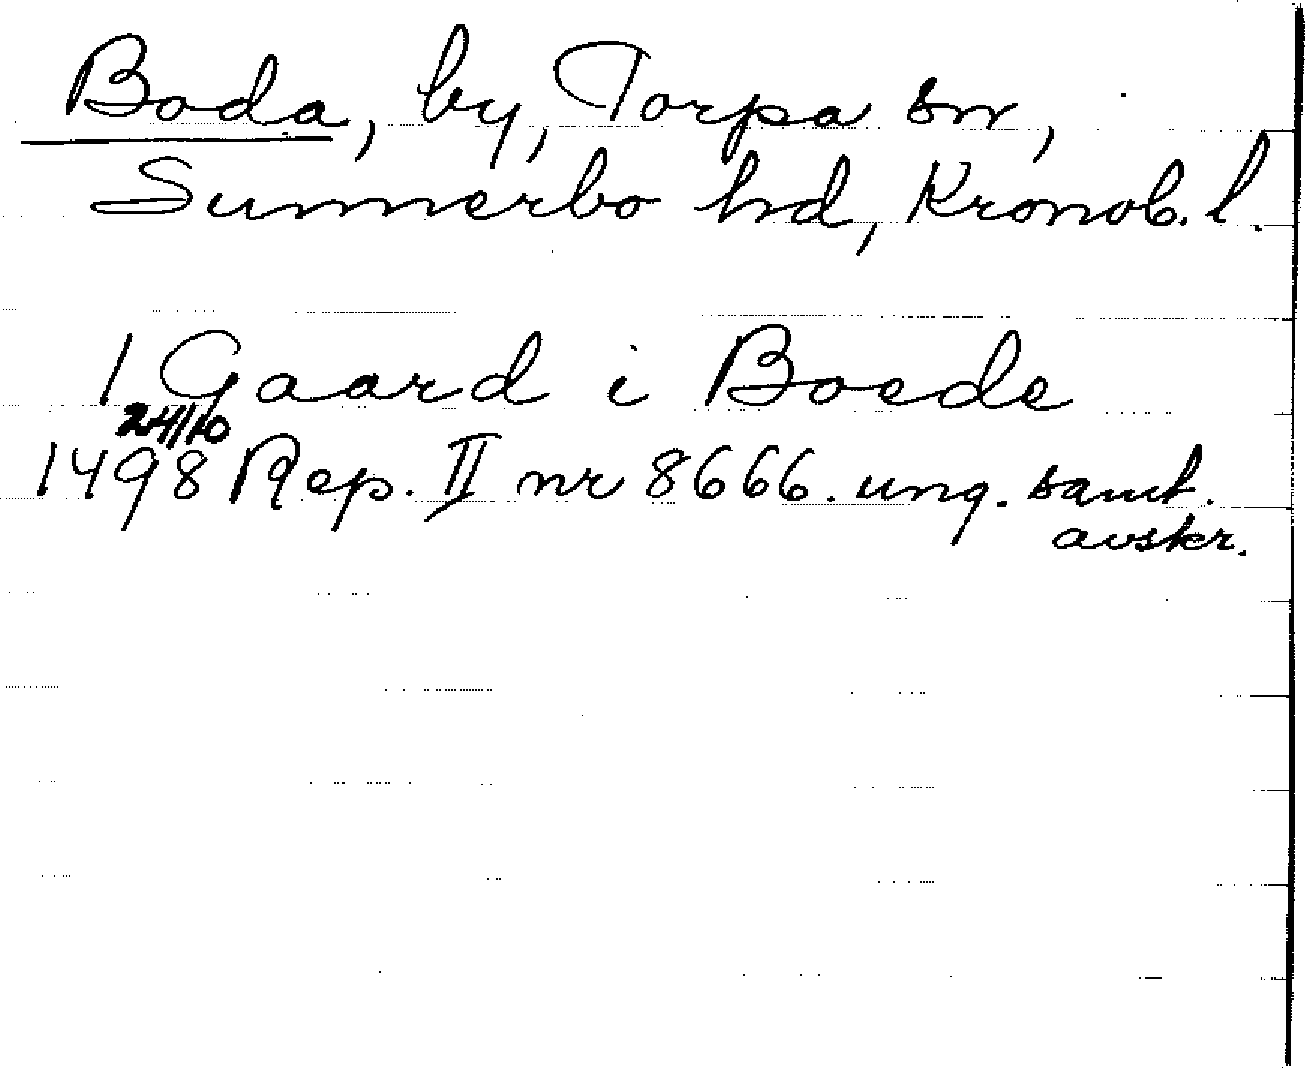 Boda, by, Torpa sn,
Sunnerbo hd, Kronob. l.
1 Gaard i Boede
24/10
1498 Rep. II nr 8666. ung. samt.
avskr.